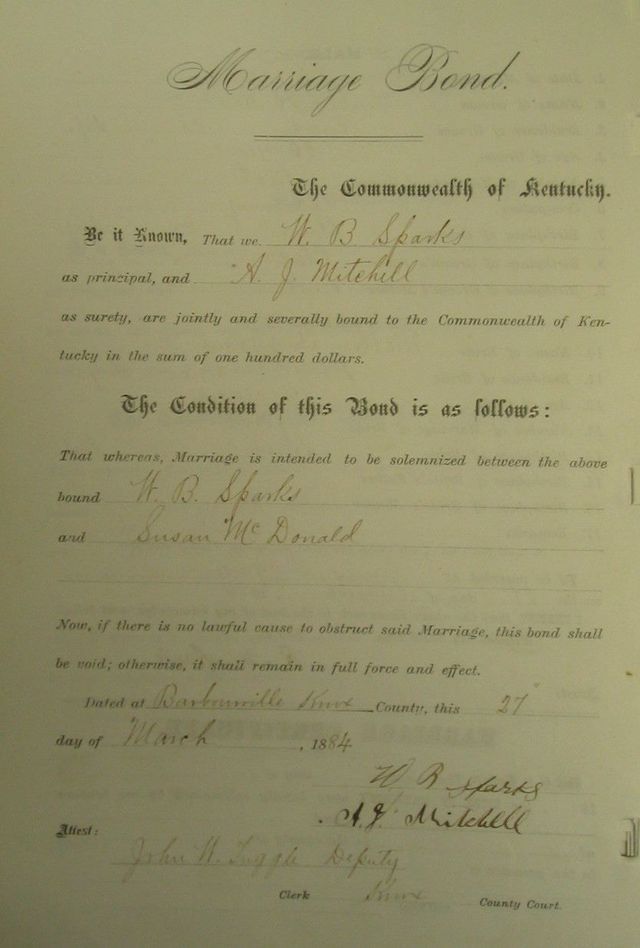 Marriage Bond.
The Commonwealth of Kentucky.
Be it Known, That we W. B Sparks
as principal, and A. J. Mitchell
as surety, are jointly and severally bound to the Commonwealth of Ken-
tucky in the sum of one hundred dollars.
The Condition of this Bond is as follows:
That whereas, Marriage is intended to be solemnized between the above
bound W. B. Sparks
and Susan Mc Donald
Now, if there is no lawful cause to obstruct said Marriage, this bond shall
be void; otherwise, it shall remain in full force and effect.
Dated at Barbourville Knox County, this 27"
day of March, 1884
W B Sparks
A. J. Mitchell
Attest:
John H. Tuggle Deputy
Clerk Knox County Court.